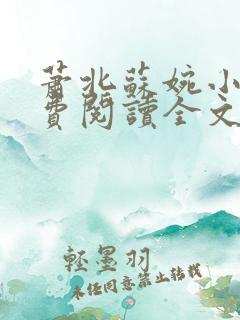 蕭北蘇婉小
費閱讀全文
輕墨羽
未經同意禁止轉載